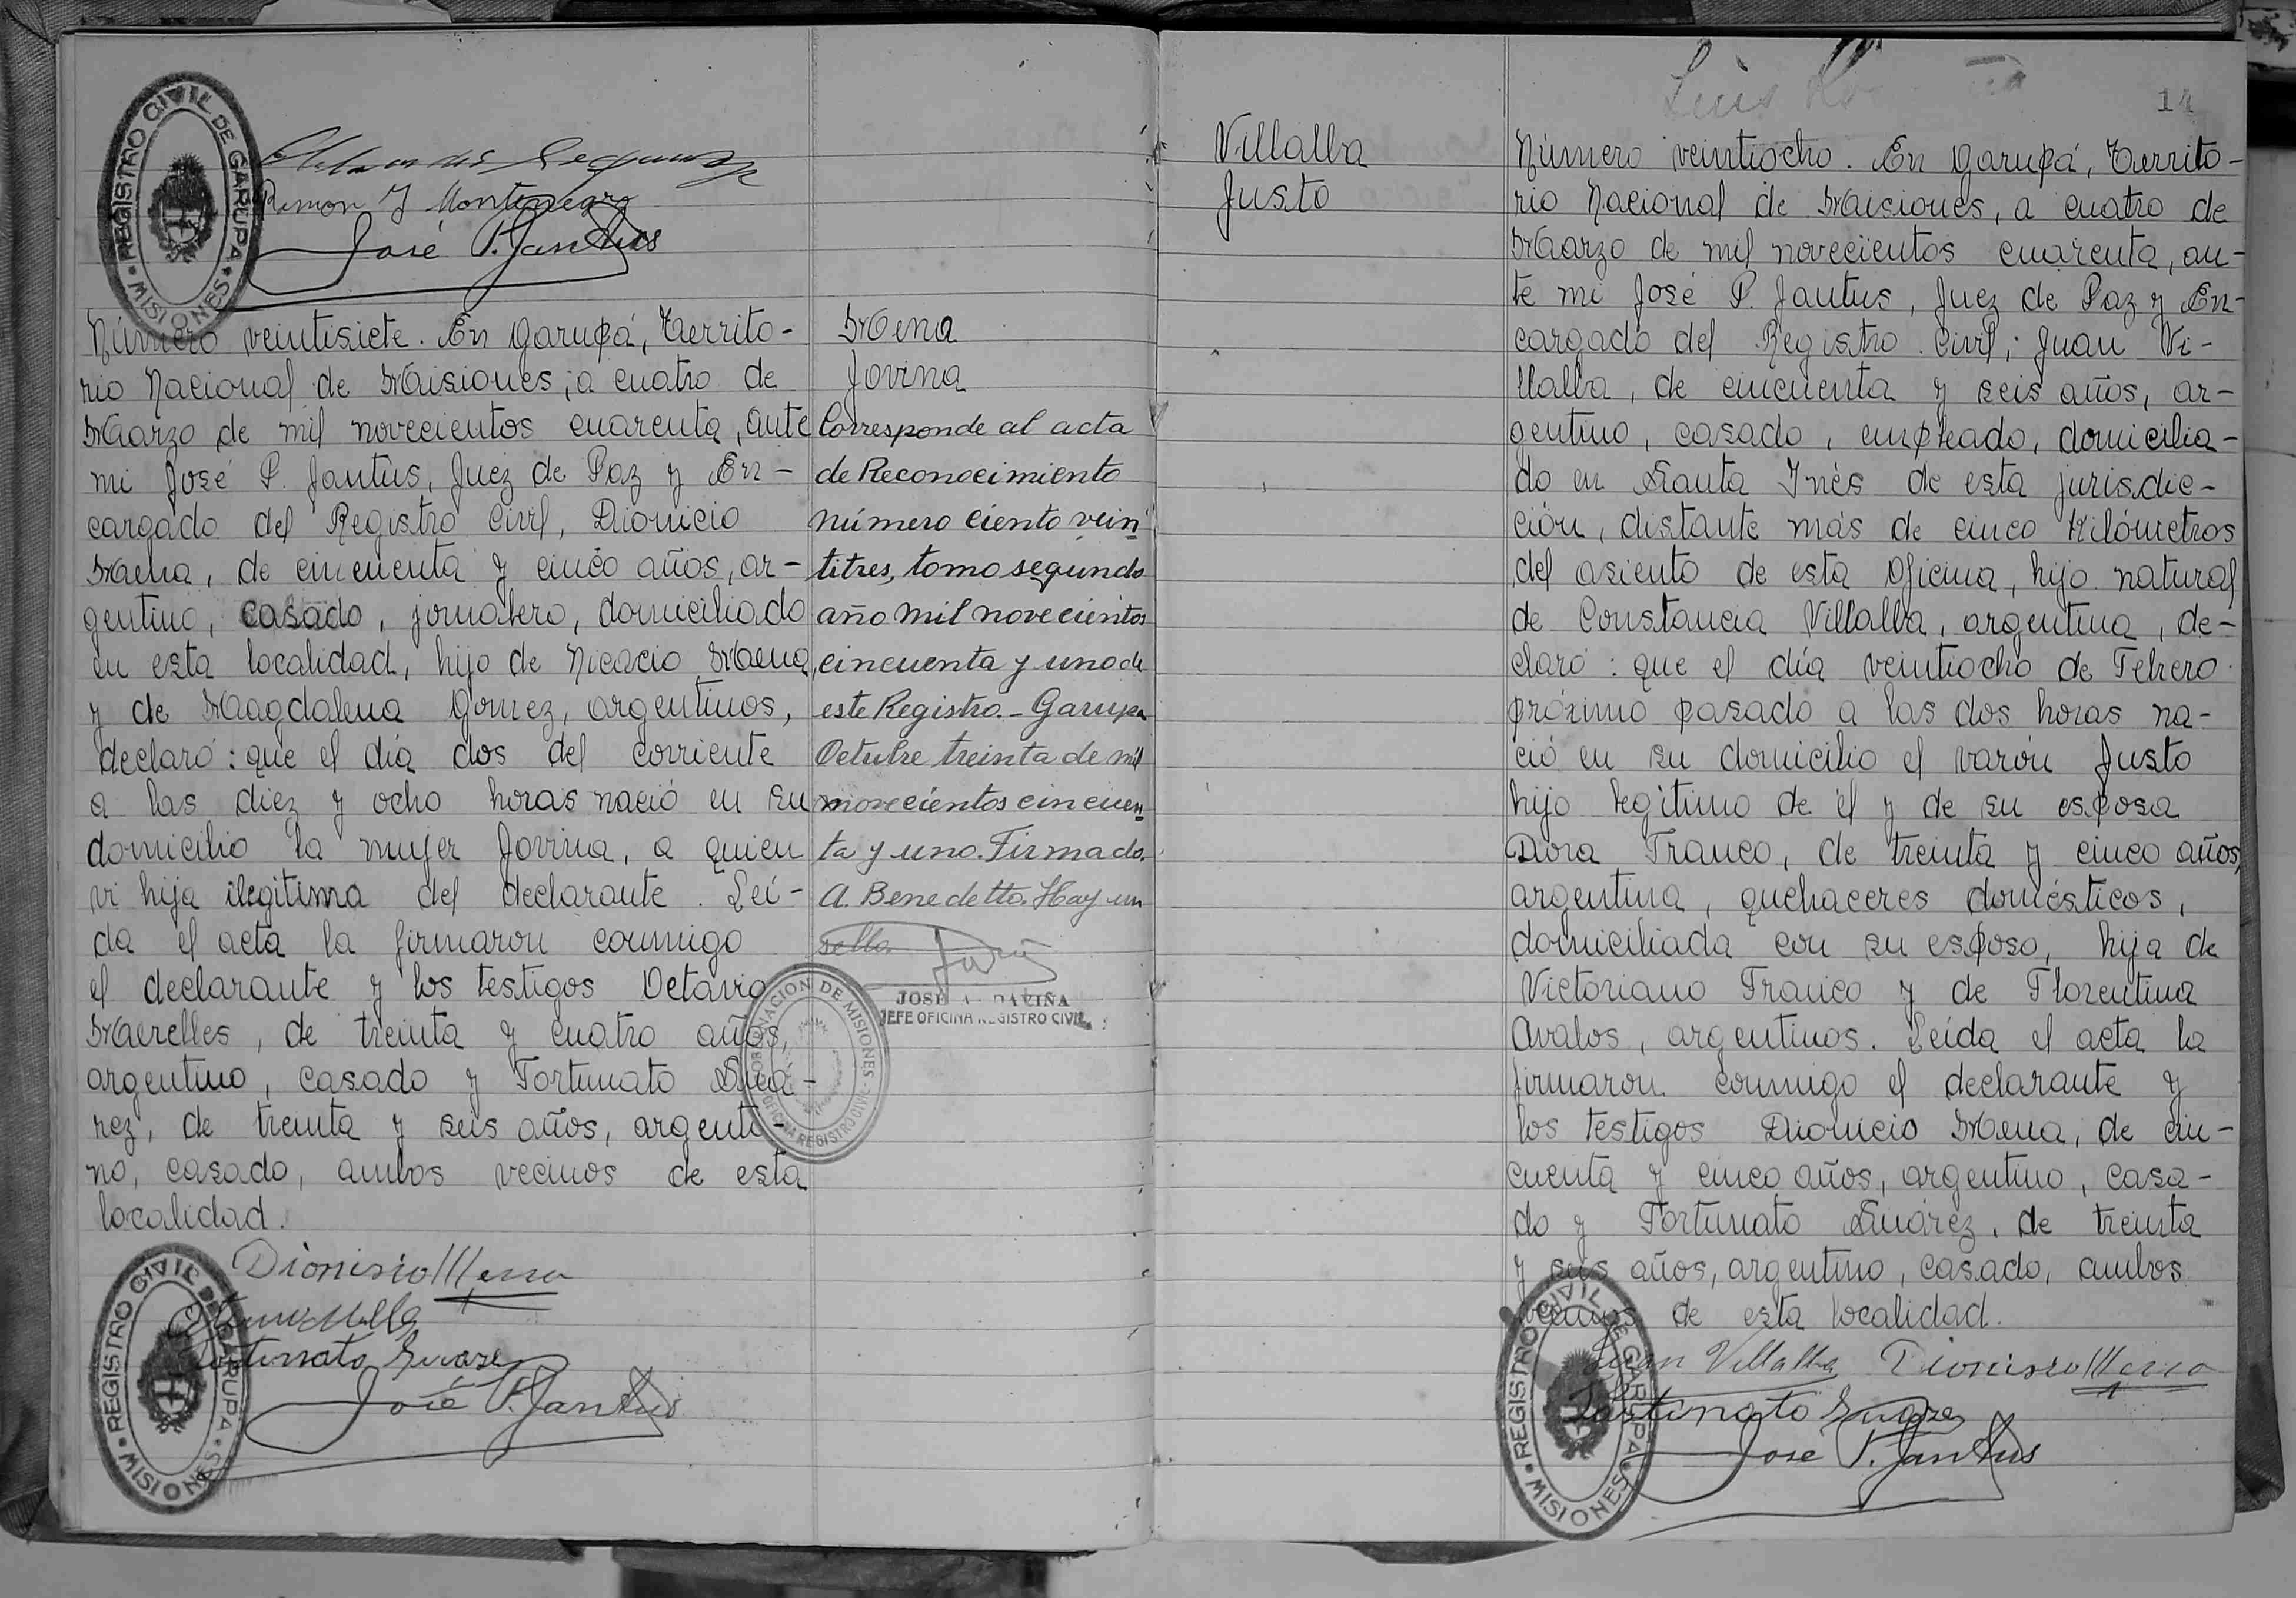 REGISTRO CIVIL DE GARUPA
MISIONES
Ramon J Montenegro
José P. Jantus
Número veintisiete. En Garupá, Territo-
rio Nacional de Misiones, a cuatro de
Marzo de mil novecientos cuarenta, ante
mi José P. Jantus, Juez de Paz y En-
cargado del Registro Civil, Dionicio
Mena, de cincuenta y cinco años, ar-
gentino, casado, jornalero, domiciliado
en esta localidad, hijo de Nicacio Mena,
y de Magdalena Gomez, argentinos,
declaró: que el día dos del corriente
a las diez y ocho horas nació en su
domicilio la mujer Jovina, a quien
vi hija ilegitima del declarante. Leí-
da el acta la firmaron conmigo
el declarante y los testigos Octavio
Maerelles, de treinta y cuatro años,
argentino, casado y Fortunato Sua-
rez, de treinta y seis años, argenti-
no, casado, ambos vecinos de esta
localidad.
Dionisio Mena
Fortunato Suares
José P. Jantus
REGISTRO CIVIL DE GARUPA
MISIONES
Mena
Jovina
Corresponde al acta
de Reconocimiento
número ciento vein
titres, tomo segundo
año mil novecientos
cincuenta y uno de
este Registro.- Garupa
Octubre treinta de mil
novecientos cincuen
ta y uno. Firmado.
A. Benedetto. Hay un
sello.
JOSE A. DAVIÑA
JEFE OFICINA REGISTRO CIVIL
GOBERNACION DE MISIONES
OFICINA REGISTRO CIVIL
Villalba
Justo
Luis
14
Número veintiocho. En Garupá, Territo-
rio Nacional de Misiones, a cuatro de
Marzo de mil novecientos cuarenta, an-
te mi José P. Jantus, Juez de Paz y En-
cargado del Registro Civil; Juan Vi-
llalba, de cincuenta y seis años, ar-
gentino, casado, empleado, domicilia-
do en Santa Inés de esta jurisdic-
ción, distante más de cinco Kilómetros
del asiento de esta Oficina, hijo natural
de Constancia Villalba, argentina, de-
claró: que el día veintiocho de Febrero
próximo pasado a las dos horas na-
ció en su domicilio el varón Justo
hijo legitimo de él y de su esposa
Dora Franco, de treinta y cinco años,
argentina, quehaceres domésticos,
domiciliada con su esposo, hija de
Victoriano Franco y de Florentina
Avalos, argentinos. Leída el acta la
firmaron conmigo el declarante y
los testigos Dionicio Mena, de cin-
cuenta y cinco años, argentino, casa-
do y Fortunato Suárez, de treinta
y seis años, argentino, casado, ambos
vecinos de esta localidad.
Juan Villalba Dionisio Mena
Fortunato Suares
José P. Jantus
REGISTRO CIVIL DE GARUPA
MISIONES